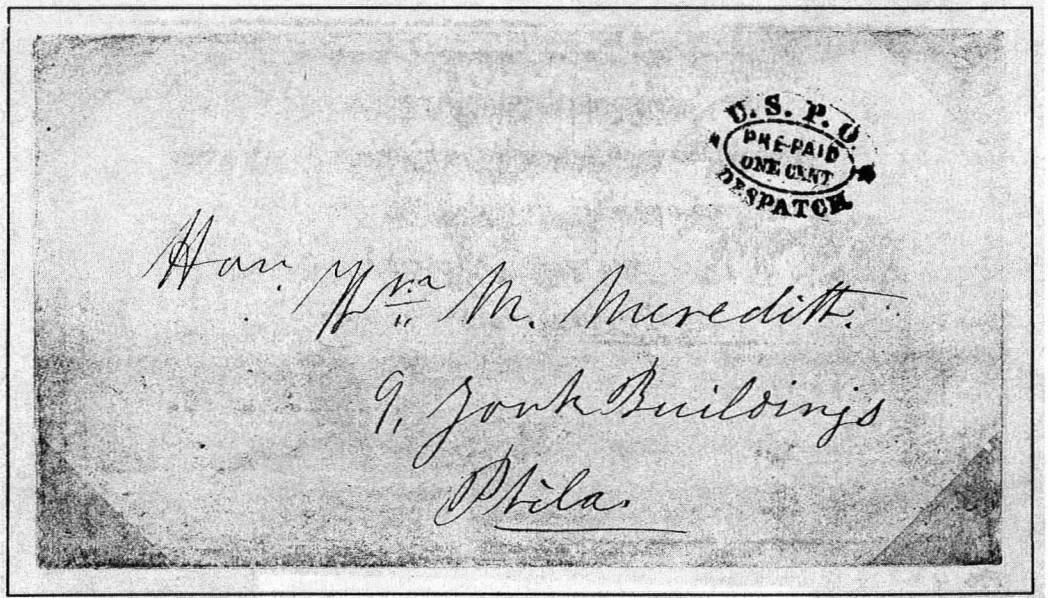 U. S. P. O.
PRE-PAID
ONE CENT
DESPATCH
Hon. Wm M. Meredith.
9, York Buildings
Phila.